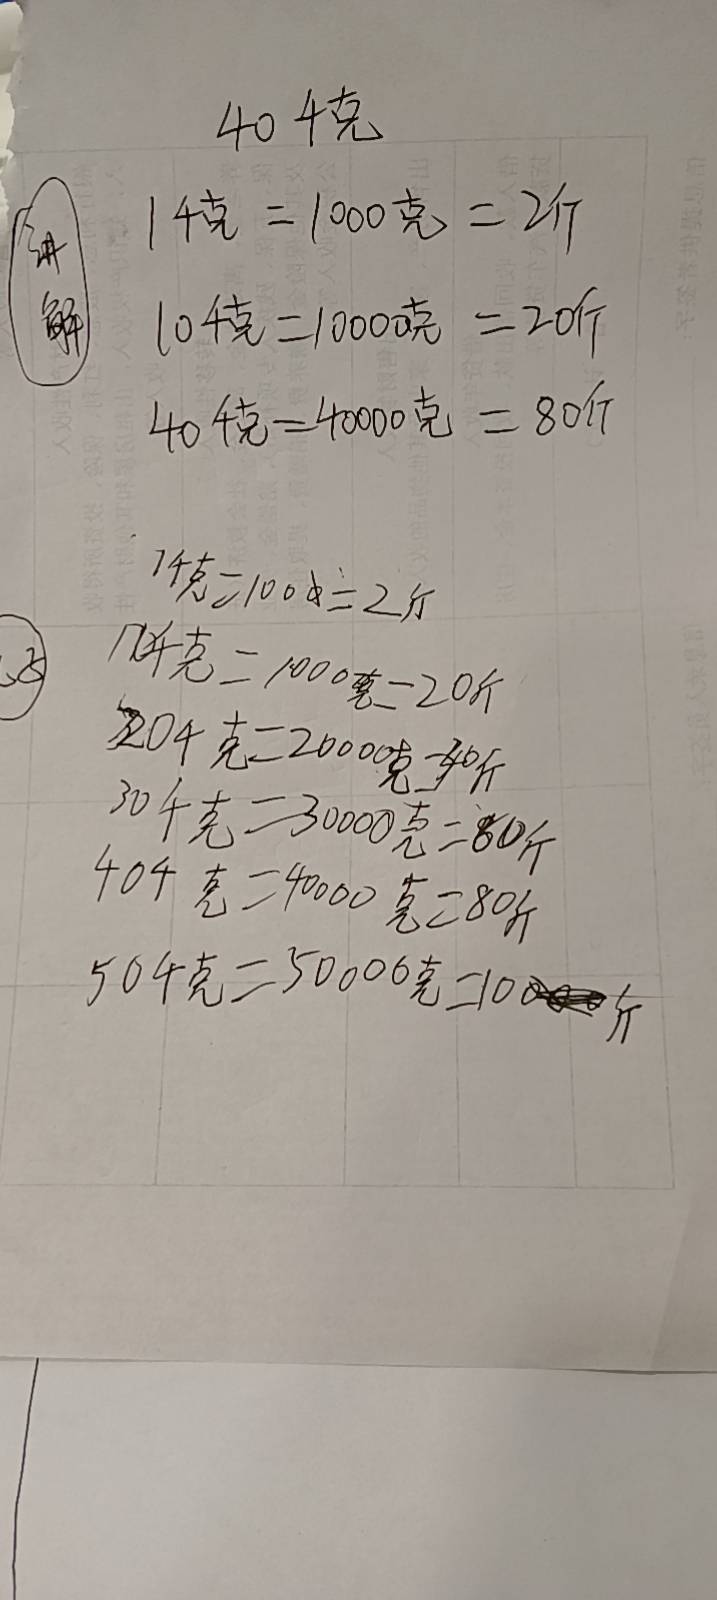 40千克
讲解
1千克=1000克=2斤
10千克=10000克=20斤
40千克=40000克=80斤
1千克=100
=2斤
千克=1000克=20斤
20千克=20000克=40斤
30千克=30000克=60斤
40千克=40000克=80斤
50千克=50000克=100斤